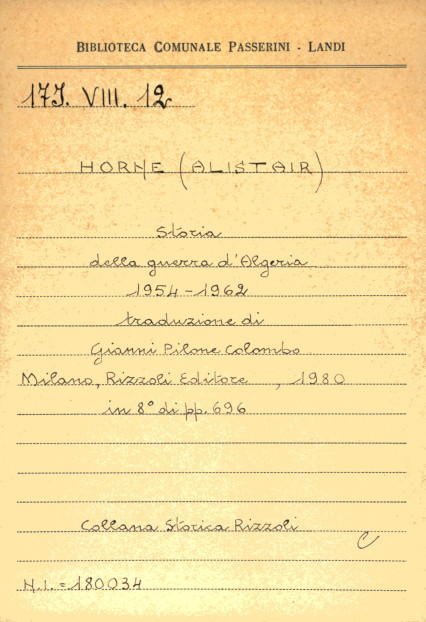 BIBLIOTECA COMUNALE PASSERINI - LANDI
17J. VIII. 12
HORNE (ALISTAIR)
Storia
della guerra d'Algeria
1954-1962
traduzione di
Gianni Pilone Colombo
Milano, Rizzoli Editore, 1980
in 8° di pp. 696
Collana Storica Rizzoli
C
N.I. = 180034